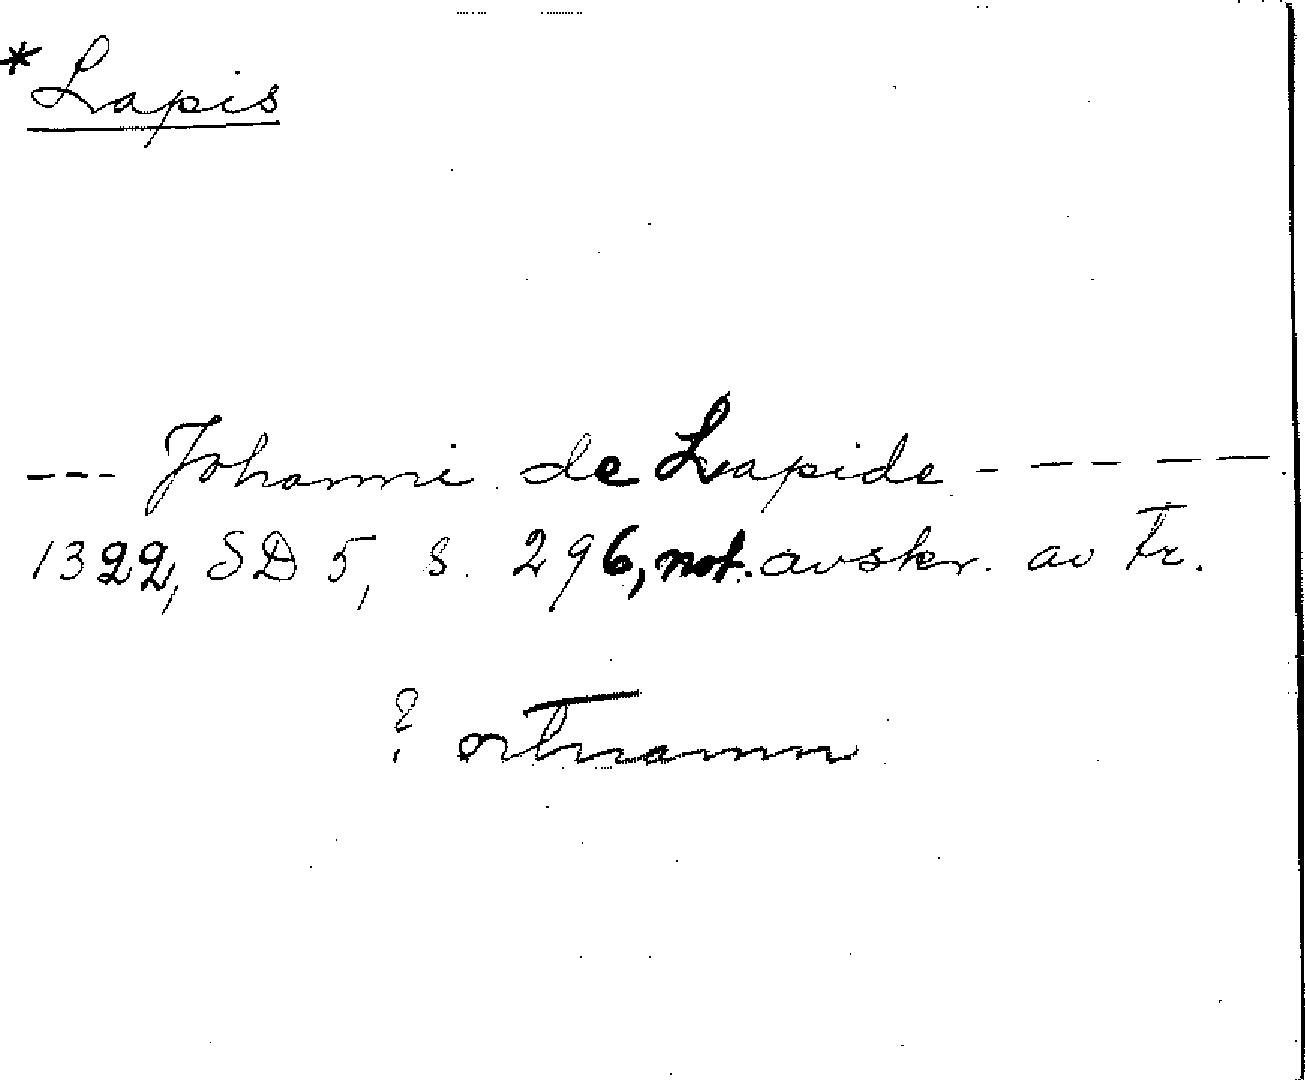 * Lapis
--- Johanni de Lapide - - - - -
1322, SD 5, s. 296, not. avskr. av Fr.
? ortnamn